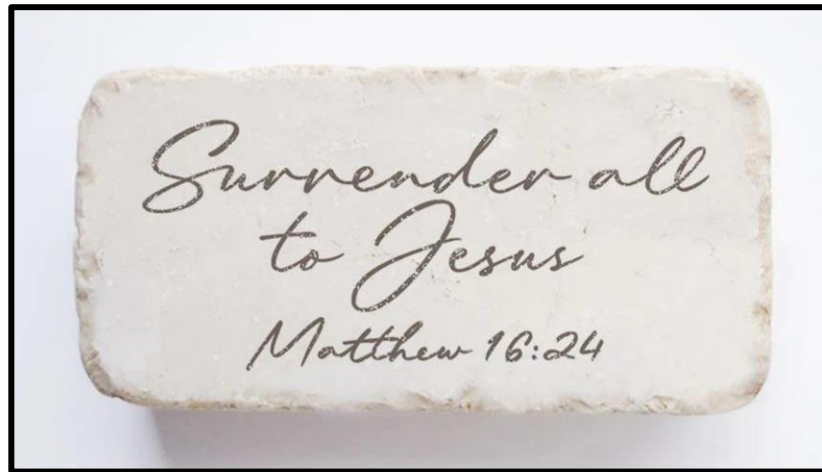 Surrender all
to Jesus
Matthew 16:24